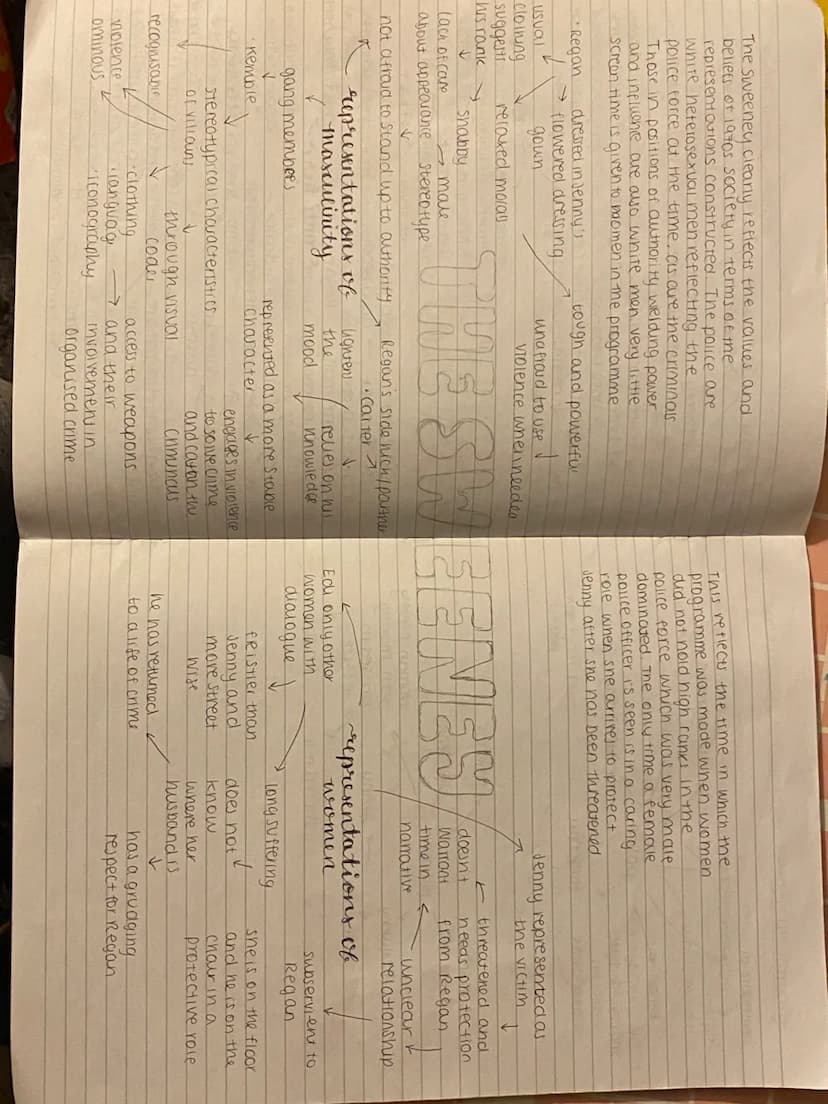 The Sweeney clearly reflects the values and
beliefs of 1970s society in terms of the
representations constructed. The police are
white heterosexual men reflecting the
police force at the time, as are the criminals
Those in positions of authority weilding power
and influene are also white men very little
screen time is given to women in the programme
• Regan
dressed in Jenny's
→ flowered dressing
gown
usual
clothing
suggests
his rank
relaxed morals
→ shabby
lack of care
about appearance
→ male
stereotype
tough and powerful
unafraid to use
violence when needed
not afraid to stand up to authority
THE SWEENEY
representations of
masculinity
Regan's side kick/partner
• Carter
lightens
the
mood
relies on his
knowledge
represented as a more stable
character
engages in violence
to solve crime
and catch the
criminals
gang members
• Kemble
stereotypical characteristics
of villains
through visual
codes
recognisable
• clothing
• language
• iconography
violence
ominous
access to weapons
and their
involvement in
organised crime
This reflects the time in which the
programme was made when women
did not hold high ranks in the
police force which was very male
dominated. The only time a female
police officer is seen is in a caring
role when she arrives to protect
Jenny after she has been threatened
Jenny represented as
the victim
threatened and
needs protection
from Regan
doesn't
warrant
time in
narrative
unclear
relationship
representations of
women
subservient to
Regan
she is on the floor
and he is on the
chair in a
protective role
Edi only other
women with
dialogue
long suffering
feistier than
Jenny and
more street
wise
does not
know
where her
husband is
he has returned
to a life of crime
has a grudging
respect for Regan